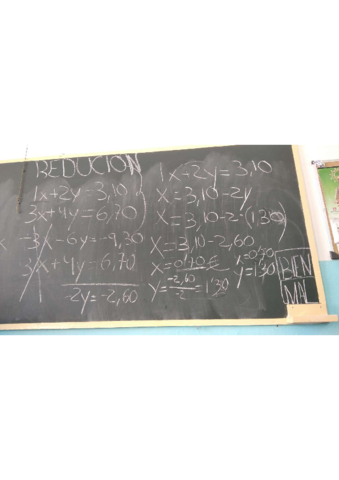 REDUCION
1x+2y=3,10
3x+4y=6,70
-3x-6y=-9,30
3x+4y=6,70
-2y=-2,60
1x-2y=3,10
x=3,10-2y
x=3,10-2·(1'30)
x=3,10-2,60
x=0'70€
y=-2,60/-2=1'30
x=0'70
y=1'30
BIEN
MAL